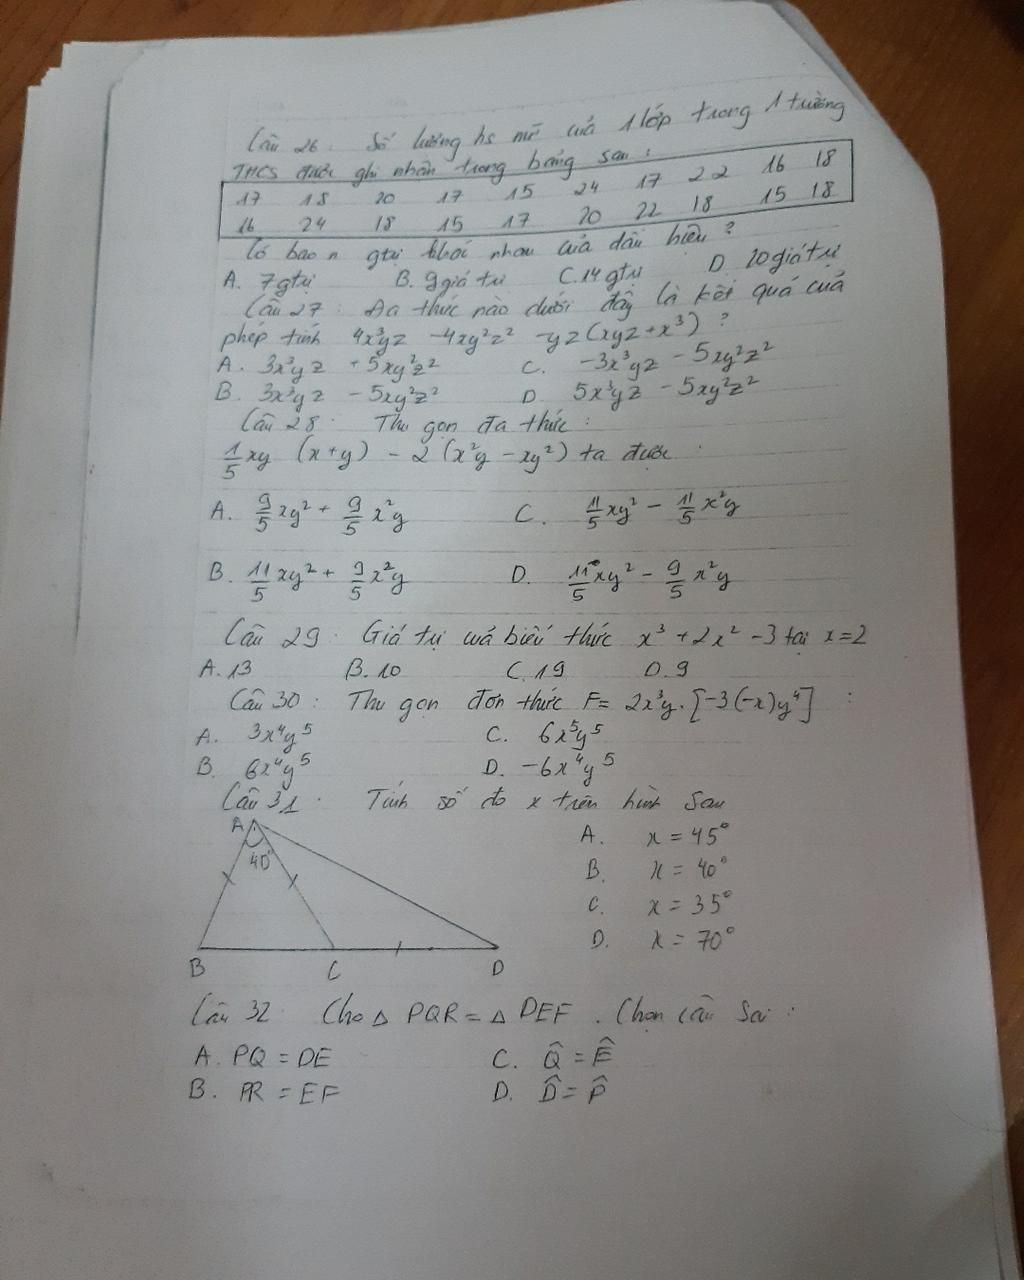 Câu 26: Số lượng hs nữ của 1 lớp trong 1 trường
THCS được ghi nhận trong bảng sau:
17 18 20 17 15 24 17 22 16 18
16 24 18 15 17 20 22 18 15 18
Có bao n gtrị khác nhau của dấu hiệu?
A. 7 gtrị B. 9 giá trị C. 14 gtrị D. 20 giá trị
Câu 27: Đa thức nào dưới đây là kết quả của
phép tính 4x³yz - 4xy²z² - yz(xyz + x³)?
A. 3x³yz + 5xy²z² C. -3x³yz - 5xy²z²
B. 3x³yz - 5xy²z² D. 5x³yz - 5xy²z²
Câu 28: Thu gọn đa thức:
1/5 xy (x+y) - 2 (x²y - xy²) ta được
A. 9/5 xy² + 9/5 x²y C. 11/5 xy² - 11/5 x²y
B. 11/5 xy² + 9/5 x²y D. 11/5 xy² - 9/5 x²y
Câu 29: Giá trị của biểu thức x³ + 2x² - 3 tại x=2
A. 13 B. 10 C. 19 D. 9
Câu 30: Thu gọn đơn thức F = 2x³y.[-3(-x)y⁴]:
A. 3x⁴y⁵ C. 6x⁵y⁵
B. 6x⁴y⁵ D. -6x⁴y⁵
Câu 31: Tính số đo x trên hình sau
A 40° B C D
A. x = 45°
B. x = 40°
C. x = 35°
D. x = 70°
Câu 32: Cho Δ PQR = Δ DEF. Chọn câu sai:
A. PQ = DE C. Q̂ = Ê
B. PR = EF D. D̂ = P̂